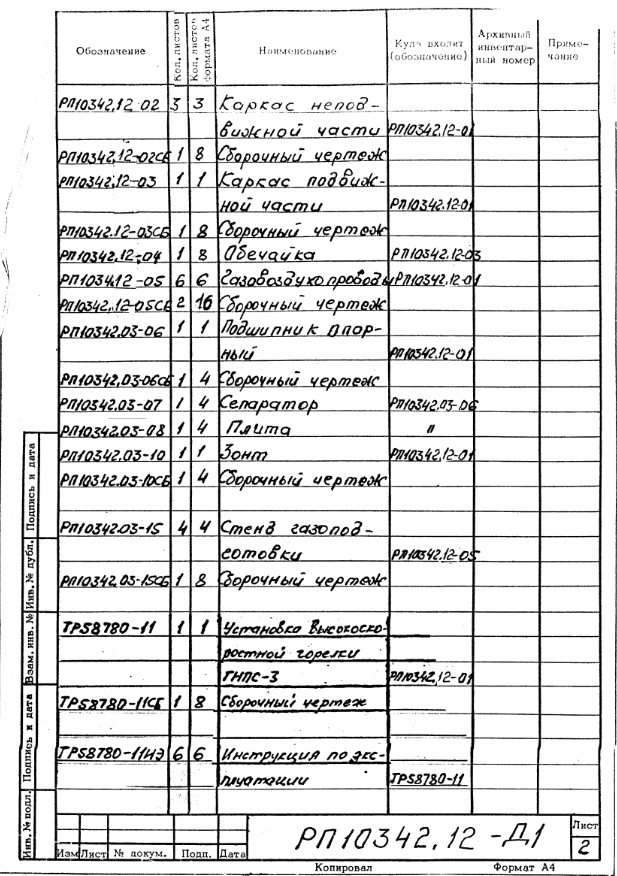 Обозначение Кол. листов Кол. листов формата А4 Наименование Куда входит (обозначение) Архивный инвентарный номер Примечание
РП10342.12-02 3 3 Каркас непод-
вижной части РП10342.12-01
РП10342.12-02СБ 1 8 Сборочный чертеж
РП10342.12-03 1 1 Каркас подвиж-
ной части РП10342.12-01
РП10342.12-03СБ 1 8 Сборочный чертеж
РП10342.12-04 1 8 Обечайка РП10342.12-03
РП1034.12-05 6 6 Газовоздухопроводы РП10342.12-01
РП10342.12-05СБ 2 16 Сборочный чертеж
РП10342.03-06 1 1 Подшипник опор-
ный РП10342.12-01
РП10342.03-06СБ 1 4 Сборочный чертеж
РП10342.03-07 1 4 Сепаратор РП10342.03-06
РП10342.03-08 1 4 Плита "
РП10342.03-10 1 1 Зонт РП10342.12-01
РП10342.03-10СБ 1 4 Сборочный чертеж
РП10342.03-15 4 4 Стенд газопод-
готовки РП10342.12-05
РП10342.03-15СБ 1 8 Сборочный чертеж
ТР58780-11 1 1 Установка высокоско-
ростной горелки
ГНПС-3 РП10342.12-01
ТР58780-11СБ 1 8 Сборочный чертеж
ТР58780-11ИЭ 6 6 Инструкция по экс-
плуатации ТР58780-11
Инв. № подл. Подпись и дата Взам. инв. № Инв. № дубл. Подпись и дата
РП10342.12-Д1
Лист
2
Изм Лист № докум. Подп. Дата
Копировал Формат А4